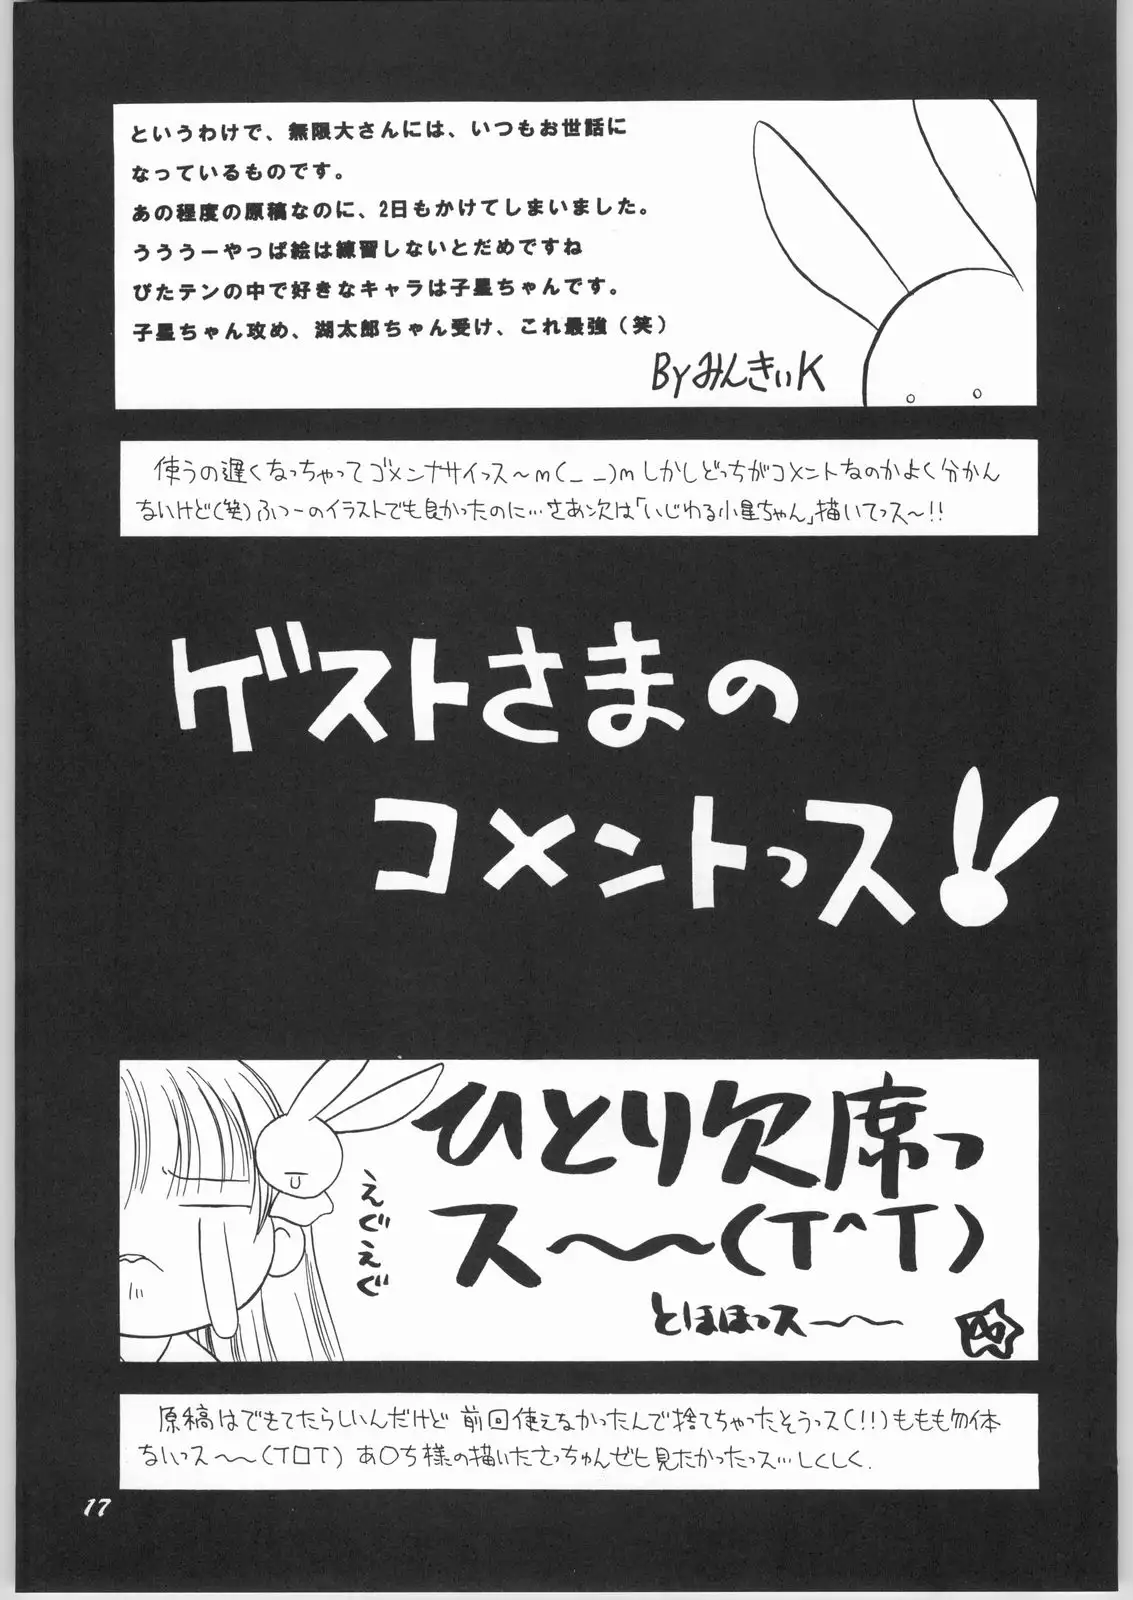 というわけで、無限大さんには、いつもお世話に
なっているものです。
あの程度の原稿なのに、2日もかけてしまいました。
うううーやっぱ絵は練習しないとだめですね
ぴたテンの中で好きなキャラは子星ちゃんです。
子星ちゃん攻め、湖太郎ちゃん受け、これ最強（笑）
ByみんきぃK
使うの遅くなっちゃってゴメンナサイっス〜m(_ _)m しかしどっちがコメントなのかよく分かん
ないけど(笑)ふつーのイラストでも良かったのに…さあ次は「いじわる小星ちゃん」描いてっス〜!!
ゲストさまの
コメントっス
ひとり欠席っ
ス〜〜(T^T)
とほほっス〜〜
えぐえぐ
原稿はできてたらしいんだけど 前回使えなかったんで捨てちゃったそうっス(!!)ももも勿体
ないっス〜〜(T□T) あ○ち様の描いたさっちゃんぜヒ見たかったっス…しくしく.
17